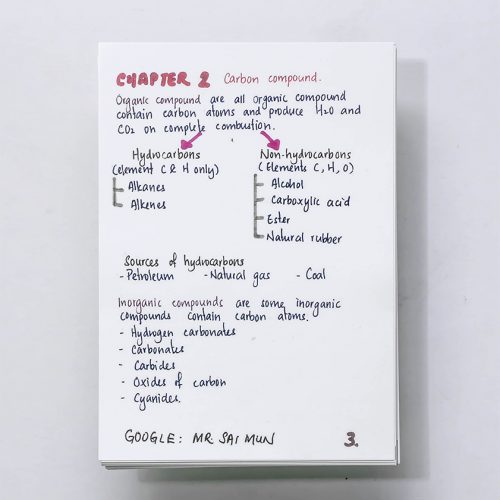 CHAPTER 2 Carbon compound.
Organic compound are all organic compound
contain carbon atoms and produce H2O and
CO2 on complete combustion.
Hydrocarbons
(element C & H only)
Alkanes
Alkenes
Non-hydrocarbons
(Elements C, H, O)
Alcohol
Carboxylic acid
Ester
Natural rubber
Sources of hydrocarbons
- Petroleum - Natural gas - Coal
Inorganic compounds are some inorganic
compounds contain carbon atoms.
- Hydrogen carbonates
- Carbonates
- Carbides
- Oxides of carbon
- Cyanides.
GOOGLE: MR SAI MUN 3.